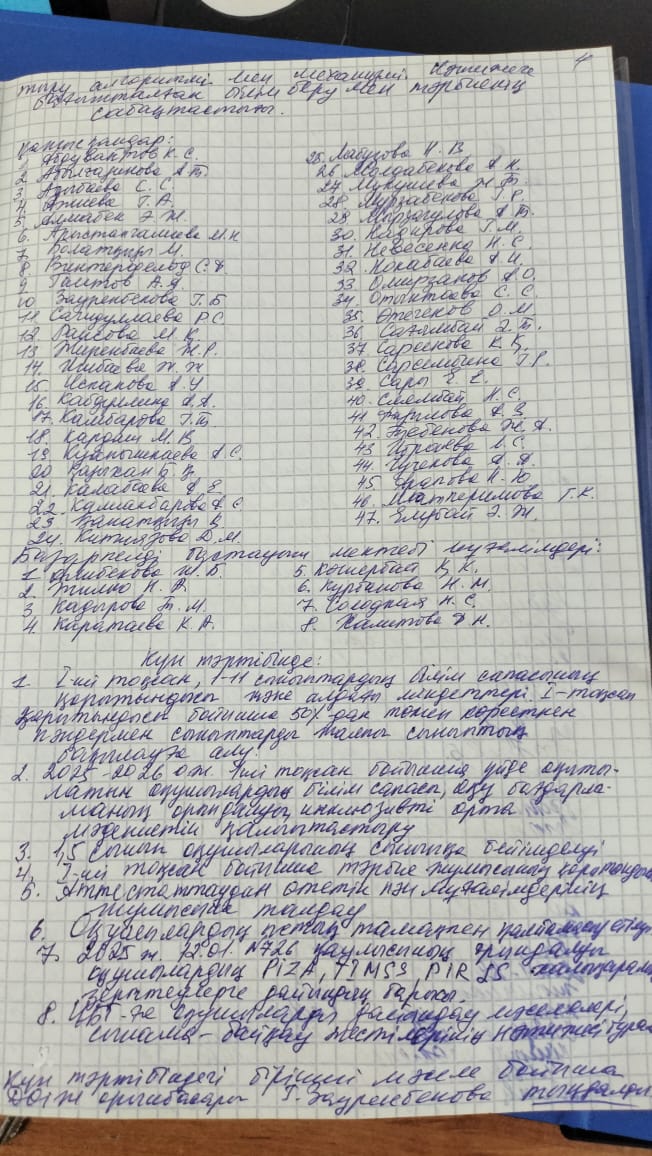 4
тыру алгоритмі мен механизмі. Нәтижеге
бағытталған білім беру мен тәрбиенің
сабақтастығы.
Қатысқандар:
1. Абдуваитов К. С.
2. Абилгаринова А. Т.
3. Агыбаева С. С.
4. Ажиева Г. А.
5. Алмабек Э. Ж.
6. Арыстангалиева М. Н
7. Болатқызы М.
8. Винтергольд С. В.
9. Галитов А. Я.
10 Зауренбекова Г. Б
11 Сагидуллаева Р С
12 Раисова М. Қ
13 Жиренбаева Ж. Р.
14. Жибаева Ж. Ж
15 Испанова А. У
16 Кабдуллина А. А.
17. Камбарова Г. Т.
18. Кардаш М. В
19 Кулпышкаева А. С.
20 Қазыхан Б.
21. Калабаева А Е
22. Камшакбарова А С
23. Қанатқызы В
24. Китиязова Д. М.
25. Лабузова Н. В
26 Молдабекова А К.
27 Мукушева Ж Т.
28. Мурзабекова Г. Р.
29 Мырзагулова А Т.
30. Надирова Г. М.
31. Невесенко Н. С.
32. Нокабаева А И.
33 Омирзаков А О.
34. Отынтаева С. С.
35. Өтегенов О. М.
36. Сатымбай Э. Т.
37. Сарсенова К. Қ.
38. Сарсембина Г. Р.
39. Сары Е. Е.
40. Смамбай Н. С.
41. Тырылова А. З.
42. Тюбенова Ж. А.
43 Ибраева А. С.
44. Цученова А. А.
45. Юрапова Н. Ю
46. Маткеримова Г. К.
47. Елубай Э. Ж.
Базаркелді бастауыш мектебі мұғалімдері:
1. Алибекова Ж. Б.
2. Жилко Н. А.
3 Кадырова Т. М.
4. Каратаева К. А.
5. Кошербай Қ. К.
6. Курбанова Н. М.
7. Солодкая Н. С.
8. Халитова Д Н.
Күн тәртібінде:
1. I-ші тоқсан, 1-11 сыныптардың білім сапасының
қорытындысы және алдағы міндеттері I-тоқсан
қорытындысы бойынша 50% дан төмен көрсеткен
пәндермен сыныптарды жалпы сыныптық
бақылауға алу.
2. 2025-2026 о.ж. 1-ші тоқсан бойынша үйде оқыты-
латын оқушылардың білім сапасы, оқу бағдарла-
маның орындалуы, инклюзивті орта
мәдениетін қалыптастыру
3. 1,5 сынып оқушыларының сыныпқа бейімделуі
4. I-ші тоқсан бойынша тәрбие жұмысының қорытындысы
5. Аттестаттаудан өтетін пән мұғалімдерінің
жұмысына талдау
6. Оқушылардың ыстық тамақпен қамтамасыз етілуі
7. 2025 ж. 12.01. №726 қаулысының орындалуы
оқушылардың PIZA, TIMSS, PIRLS халықаралық
зерттеулерге дайындық барысы.
8. ҰБТ-ға оқушыларды дайындау мәселелері,
сынама-байқау тестілерінің нәтижесі туралы
Күн тәртібіндегі бірінші мәселе бойынша
ДОІЖ орынбасары Г. Зауренбекова тыңдалды